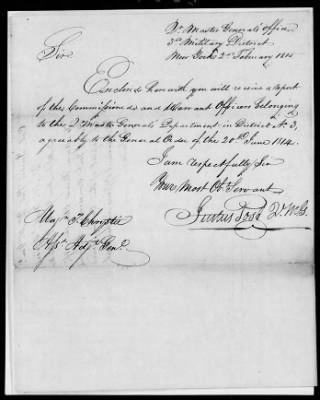 Qr. Master General's Office
3rd Military District
New York 2nd February 1815
Sir
Enclosed herewith you will receive a report
of the Commissioned and Warrant Officers belonging
to the Q. Master General's Department in District No. 3,
agreeably to the General Order of the 20th June 1814.
I am respectfully Sir
Your Most Obt. Servant
Justus Post Q. M. G.
Majr. J. Chrystie
Asst. Adjt. Genl.